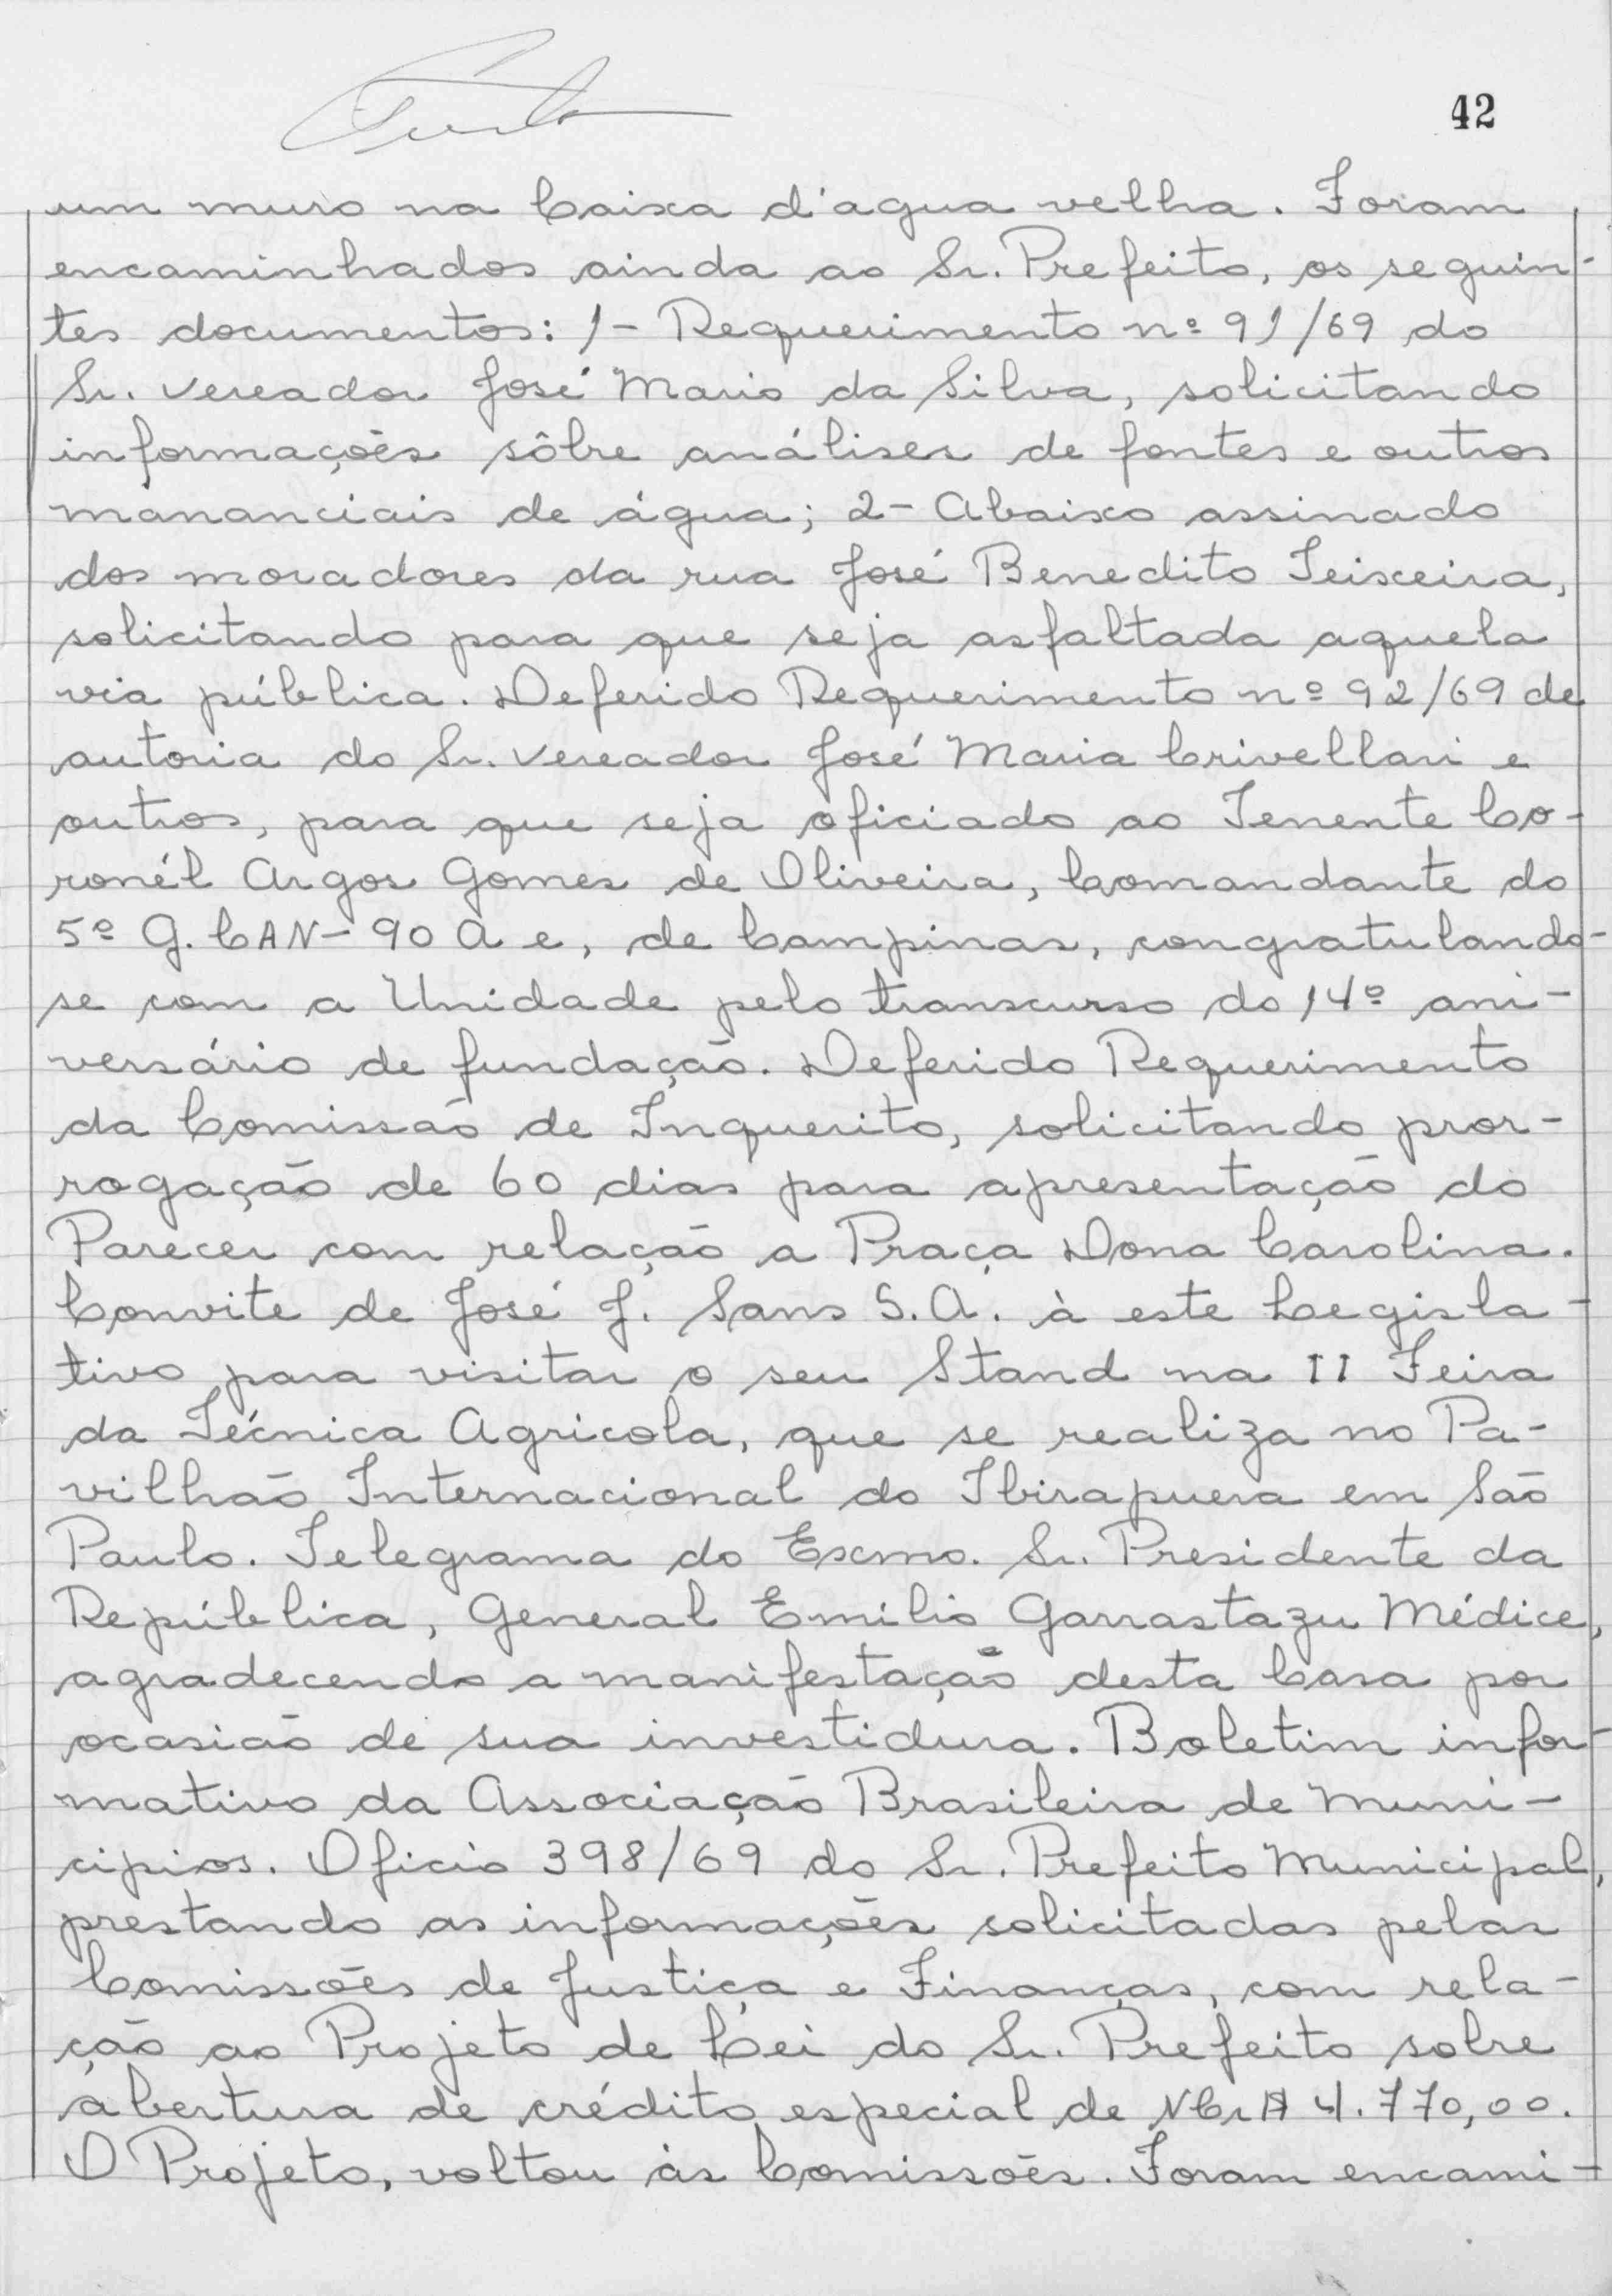 42
um muro na Caixa d'agua velha. Foram
encaminhados ainda ao Sr. Prefeito, os seguin-
tes documentos: 1- Requerimento nº 91/69 do
Sr. Vereador José Mario da Silva, solicitando
informações sôbre análises de fontes e outros
mananciais de água; 2- Abaixo assinado
dos moradores da rua José Benedito Teixeira,
solicitando para que seja asfaltada aquela
via pública. Deferido Requerimento nº 92/69 de
autoria do Sr. Vereador José Maria Crivellari e
outros, para que seja oficiado ao Tenente Co-
ronél Argos Gomes de Oliveira, Comandante do
5º G. CAN-90 Ae, de Campinas, congratulando-
se com a Unidade pelo transcurso do 14º ani-
versário de fundação. Deferido Requerimento
da Comissão de Inquerito, solicitando pror-
rogação de 60 dias para apresentação do
Parecer com relação a Praça Dona Carolina.
Convite de José J. Sans S.A. à este Legisla-
tivo para visitar o seu Stand na II Feira
da Técnica Agricola, que se realiza no Pa-
vilhão Internacional do Ibirapuera em São
Paulo. Telegrama do Excmo. Sr. Presidente da
República, General Emilio Garrastazu Médice,
agradecendo a manifestação desta Casa por
ocasião de sua investidura. Boletim infor-
mativo da Associação Brasileira de Muni-
cipios. Oficio 398/69 do Sr. Prefeito Municipal,
prestando as informações solicitadas pelas
Comissões de Justiça e Finanças, com rela-
ção ao Projeto de Lei do Sr. Prefeito sobre
abertura de crédito especial de NCr$ 4.770,00.
O Projeto, voltou às Comissões. Foram encami-